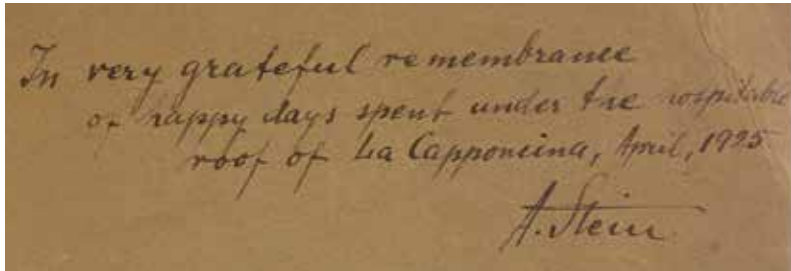 In very grateful remembrance
of happy days spent under the hospitable
roof of La Capponcina, April, 1925
A. Stein